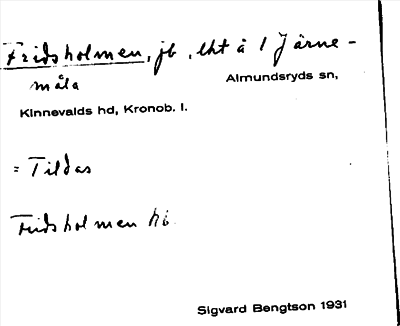 Fridsholmen, jb, lht å 1 Järne-
måla
Almundsryds sn,
Kinnevalds hd, Kronob. l.
= Tildas
Fridsholmen hö
Sigvard Bengtson 1931